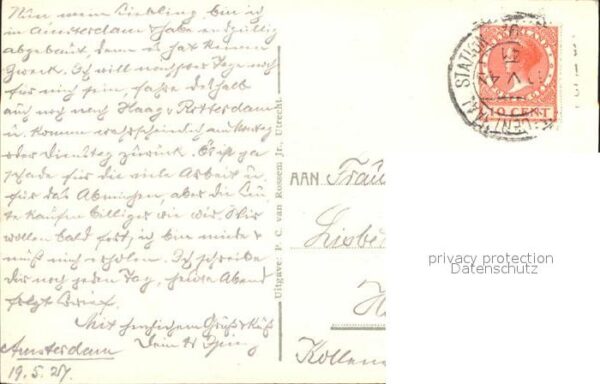 Nun, mein Liebling, bin ich
in Amsterdam & habe endgültig
abgebaut, denn es hat keinen
Zweck. Ich will noch
fahre deshalb
auch noch nach Haag, Rotterdam
u. komme wahrscheinlich am Montag
oder Dienstag zurück. Es ist ja
schade für die viele Arbeit u.
für das Abmühen, aber die Leu-
te kaufen billiger wie wir. Wir
wollen bald fort, ich bin müde &
muß mich erholen. Ich schreibe
Dir noch jeden Tag, heute Abend
folgt Brief.
Mit herzlichem Gruß & Kuß
Dein
Amsterdam
19.5.27.
Uitgave: P. C. van Rossem Jr., Utrecht.
STATION
10 CENT
AAN Frau
Kollen
privacy protection
Datenschutz